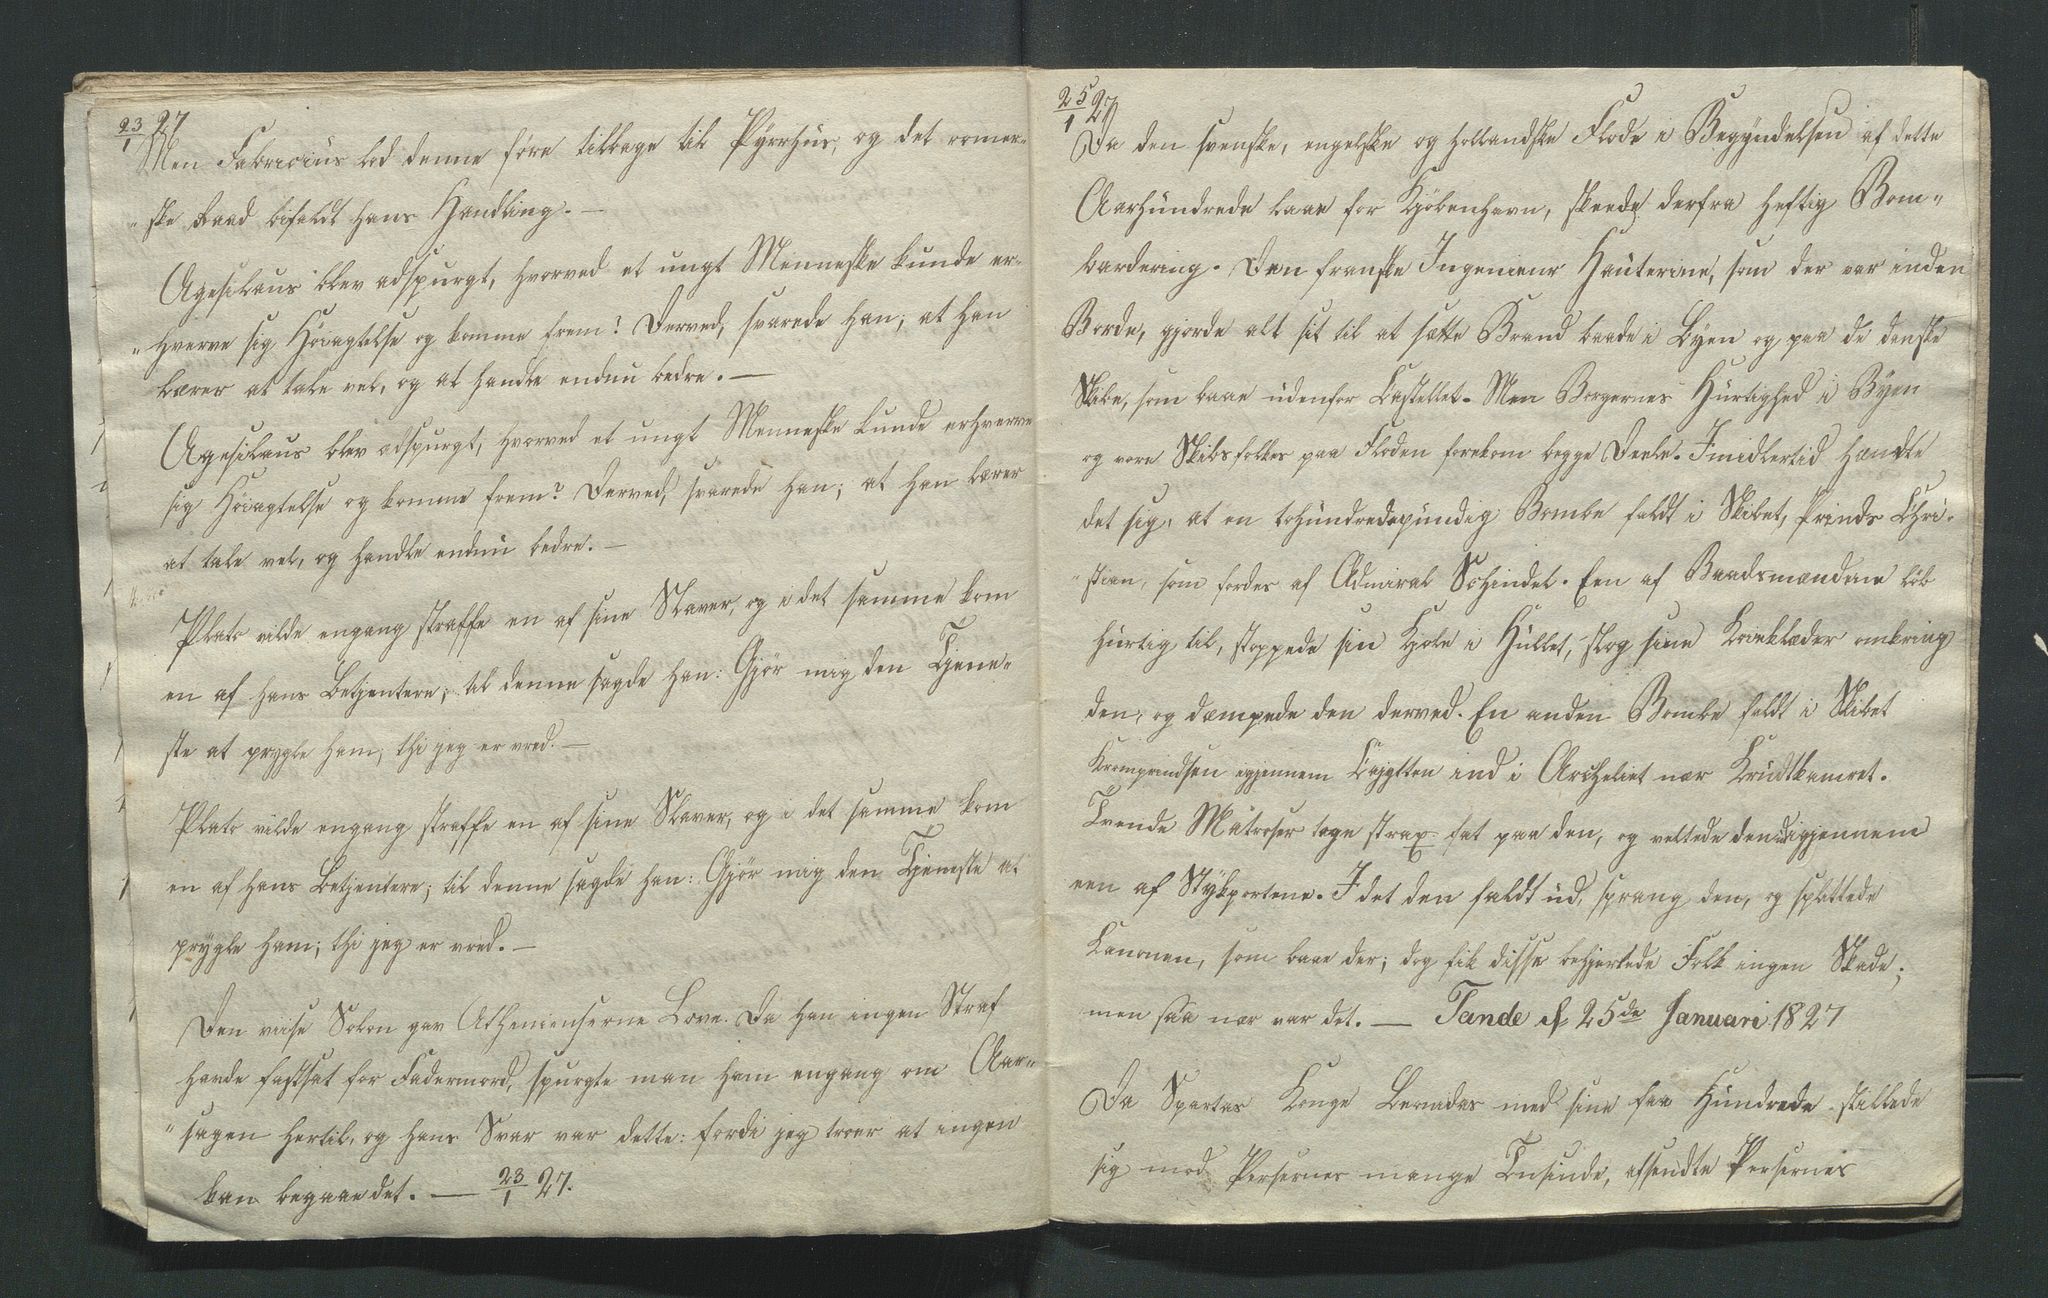 23/1 27
Men Fabricius lod denne føre tilbage til Pÿrrhus, og det romer-
"ske Raad bifaldt hans Handling. —
Agesilaus blev adspurgt, hvorved et ungt Menneske kunde er-
"hverve sig Høiagtelse og komme frem? Derved, svarede han; at han
lærer at tale vel, og at handle endnu bedre. —
Agesilaus blev adspurgt, hvorved et ungt Menneske kunde erhverve
sig Høiagtelse og komme frem? Derved, svarede han; at han lærer
at tale vel, og handle endnu bedre. —
Plato vilde engang straffe en af sine Slaver, og i det samme kom
en af hans Betjentere; til denne sagde han: Gjør mig den Tjene-
ste at prygle ham; thi jeg er vred. —
Plato vilde engang straffe en af sine Slaver, og i det samme kom
en af hans Betjentere; til denne sagde han: Gjør mig den Tjeneste at
prÿgle ham; thi jeg er vred. —
Den viise Solon gav Athenienserne Love. Da han ingen Straf
havde fastsat for Fadermord, spurgte man ham engang om Aar-
"sagen hertil, og hans Svar var dette: fordi jeg troer at ingen
kan begaae det. — 23/1 27.
25/1 27
Da den svenske, engelske og hollandske Flode i Begÿndelsen af dette
Aarhundrede laae for Kjöbenhavn, skeede derfra heftig Bom-
bardering. Den franske Ingenieur Hauterive, som der var inden
Borde, gjorde alt sit til at sætte Brand baade i Byen og paa de danske
Skibe, som laae udenfor Castellet. Men Borgernes Hurtighed i Bÿen
og vore Skibsfolkes paa Floden forekom begge Deele. Imidlertid hændte
det sig, at en tohundredepundig Bombe faldt i Skibet, Prinds Chri-
"stian, som fördes af Admiral Schindel. Een af Baadsmændene löb
hurtig til, stoppede sin Kjole i Hullet, slog sine Huuklæder omkring
den, og dæmpede den derved. En anden Bombe faldt i Skibet
Kronprindsen igjennem Cajÿtten ind i Archeliet nær Krudtkamret.
Tvende Matroser toge strax fat paa den, og veltede den ud igjennem
een af Stÿkportene. I det den faldt ud, sprang den, og splittede
Canonen, som laae der; dog fik disse behjertede Folk ingen Skade;
men saa nær var det. — Tande d. 25de Januari 1827
Da Spartas Konge Leonidas med sine faa Hundrede stillede
sig mod Persernes mange Tusinde, afsendte Persernes